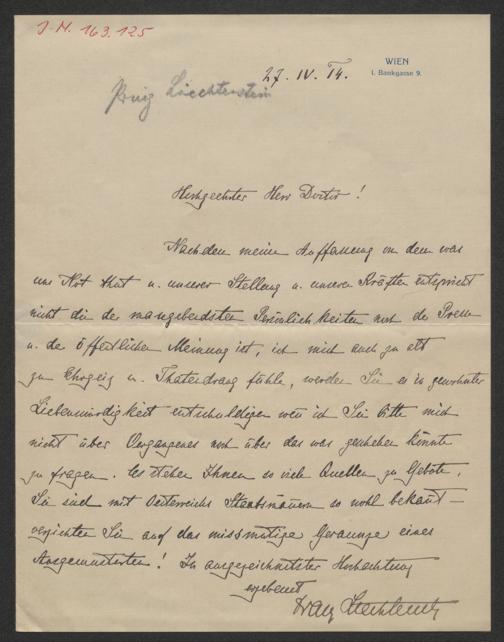 J.N. 163.125
WIEN
I. Bankgasse 9.
27. IV. 14.
Prinz Liechtenstein
Hochgeehrter Herr Doctor!
Nachdem meine Auffassung von dem was
uns Not thut u. unserer Stellung u. unseren Kräften entspricht
nicht die der massgebendsten Persönlichkeiten noch der Presse
u. der öffentlichen Meinung ist, ich mich auch zu alt
zu Ehrgeiz u. Thatendrang fühle, werden Sie es in gewohnter
Liebenswürdigkeit entschuldigen wenn ich Sie bitte mich
nicht über Vergangenes noch über das was geschehen könnte
zu fragen. Es stehen Ihnen so viele Quellen zu Gebote,
Sie sind mit Oesterreichs Staatsmännern so wohl bekannt –
verzichten Sie auf das missmutige Geraunze eines
Ausgemusterten! In ausgezeichneter Hochachtung
ergebenst
Franz Liechtenstein